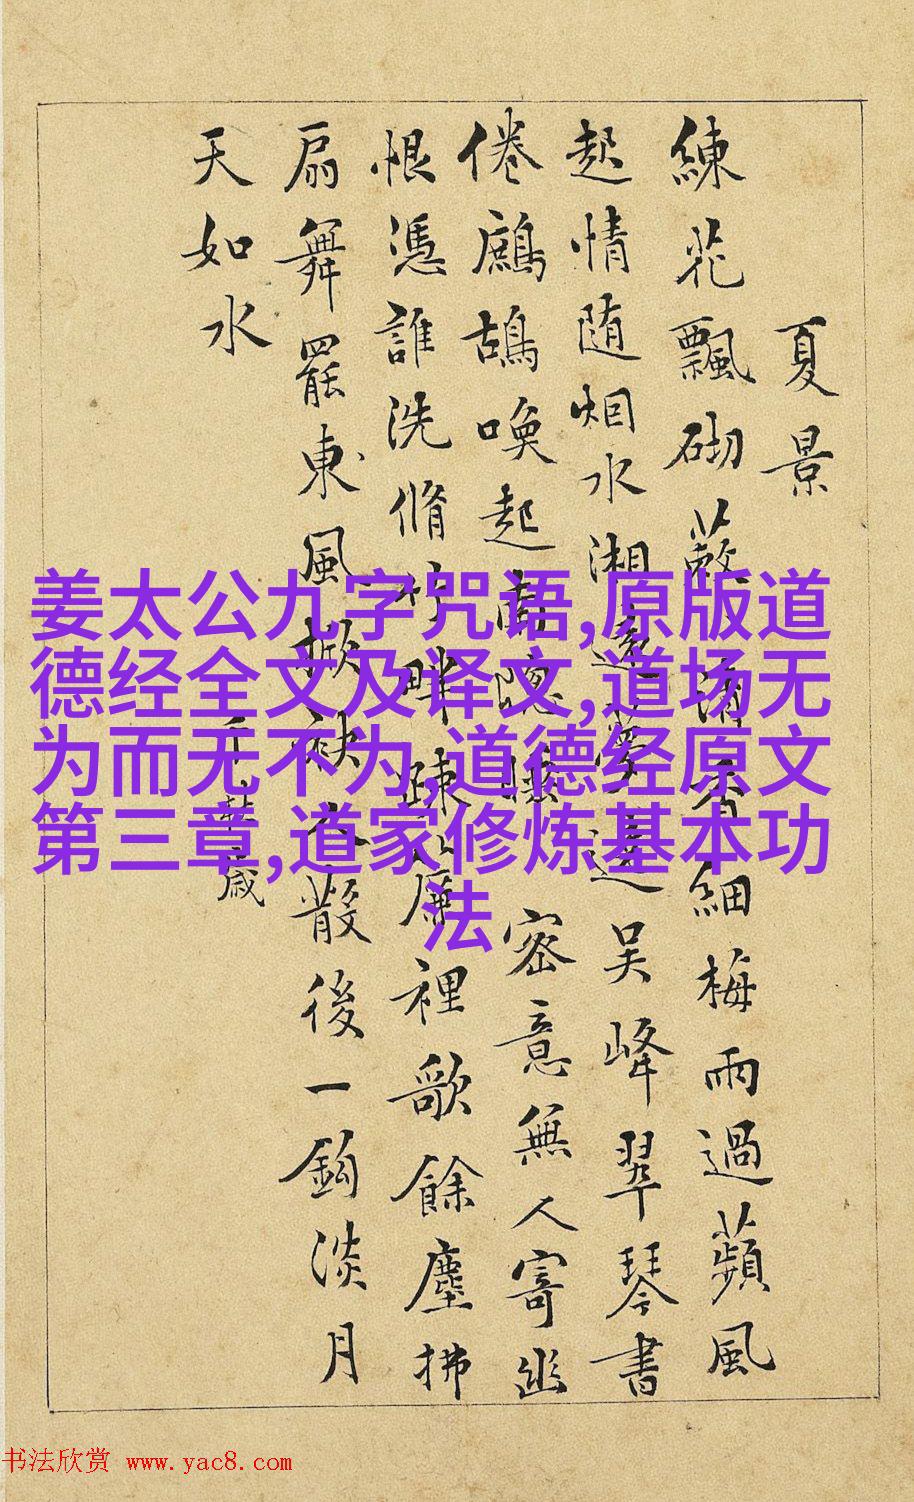 夏景
練花飄砌蔌清香細梅雨過蘋風
起情随烟水湘遠夢遶吳峰翠琴書
倦鷓鴣喚起南窓睡密意無人寄幽
恨憑誰洗脩竹畔疎簾裡歌餘塵拂
扇舞罷東風掀袂人散後一鈎淡月
天如水
千秋歲
姜太公九字咒语,原版道
德经全文及译文,道场无
为而无不为,道德经原文
第三章,道家修炼基本功
法
书法欣赏 www.yac8.com